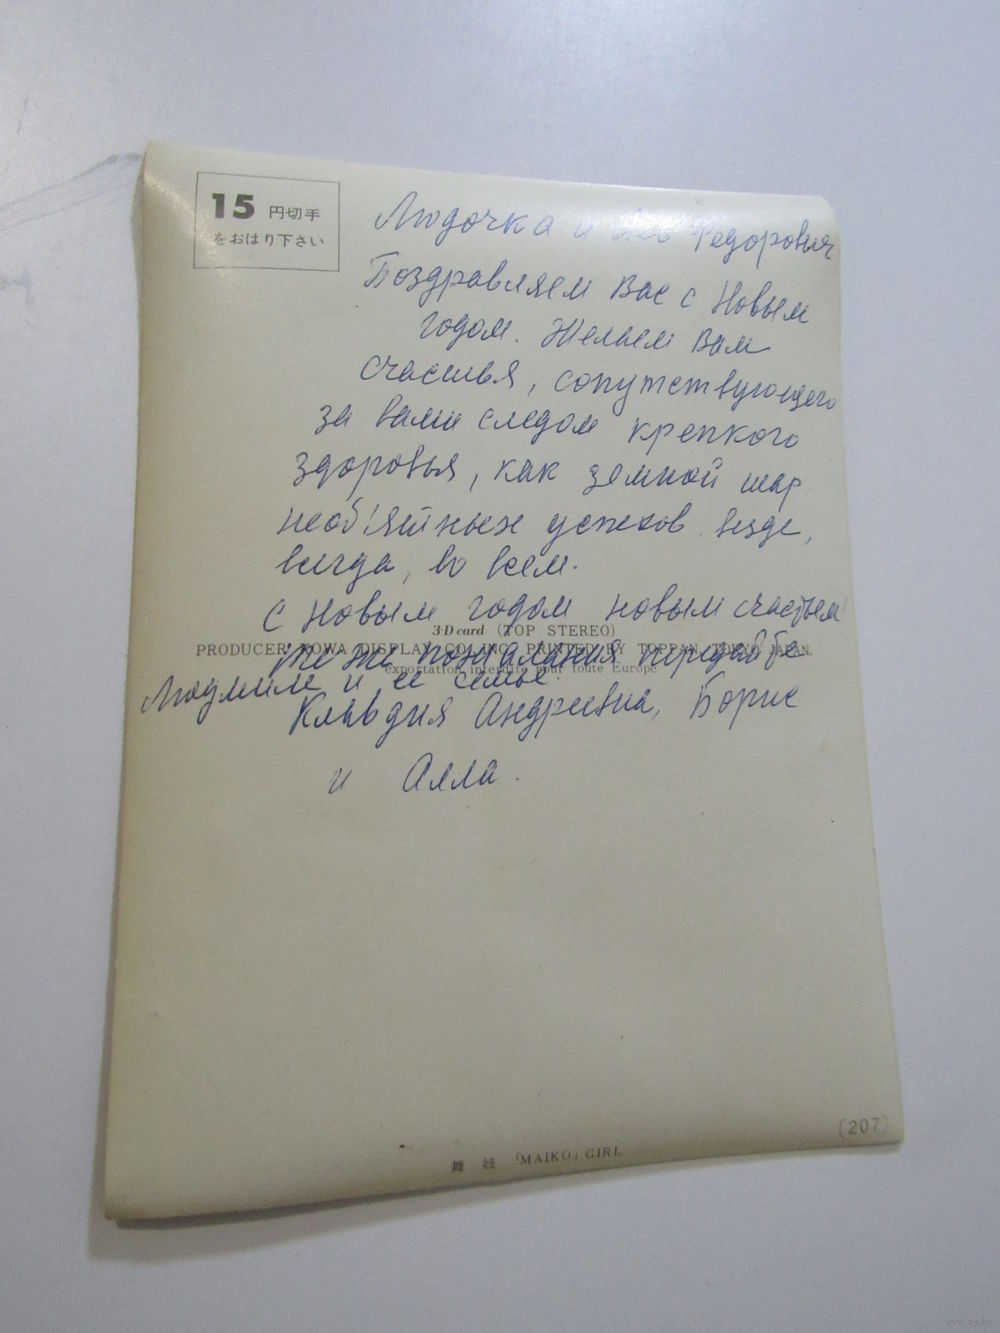 15 円切手
をおはり下さい
Людочка и Лев Федорович
Поздравляем Вас с Новым
годом. Желаем Вам
счастья, сопутствующего
за вами следом крепкого
здоровья, как земной шар
необ'ятных успехов везде,
всегда, во всем.
С Новым годом новым счастьем
3-D card (TOP STEREO)
PRODUCER KOWA DISPLAY CO., INC. PRINTED BY TOPPAN, TOKYO, JAPAN.
те же пожелания передайте
exportation interdite pour toute Europe
Людмиле и ее семье.
Клавдия Андреевна, Борис
и Алла.
(207)
舞妓 「MAIKO」 GIRL
www.ay.by